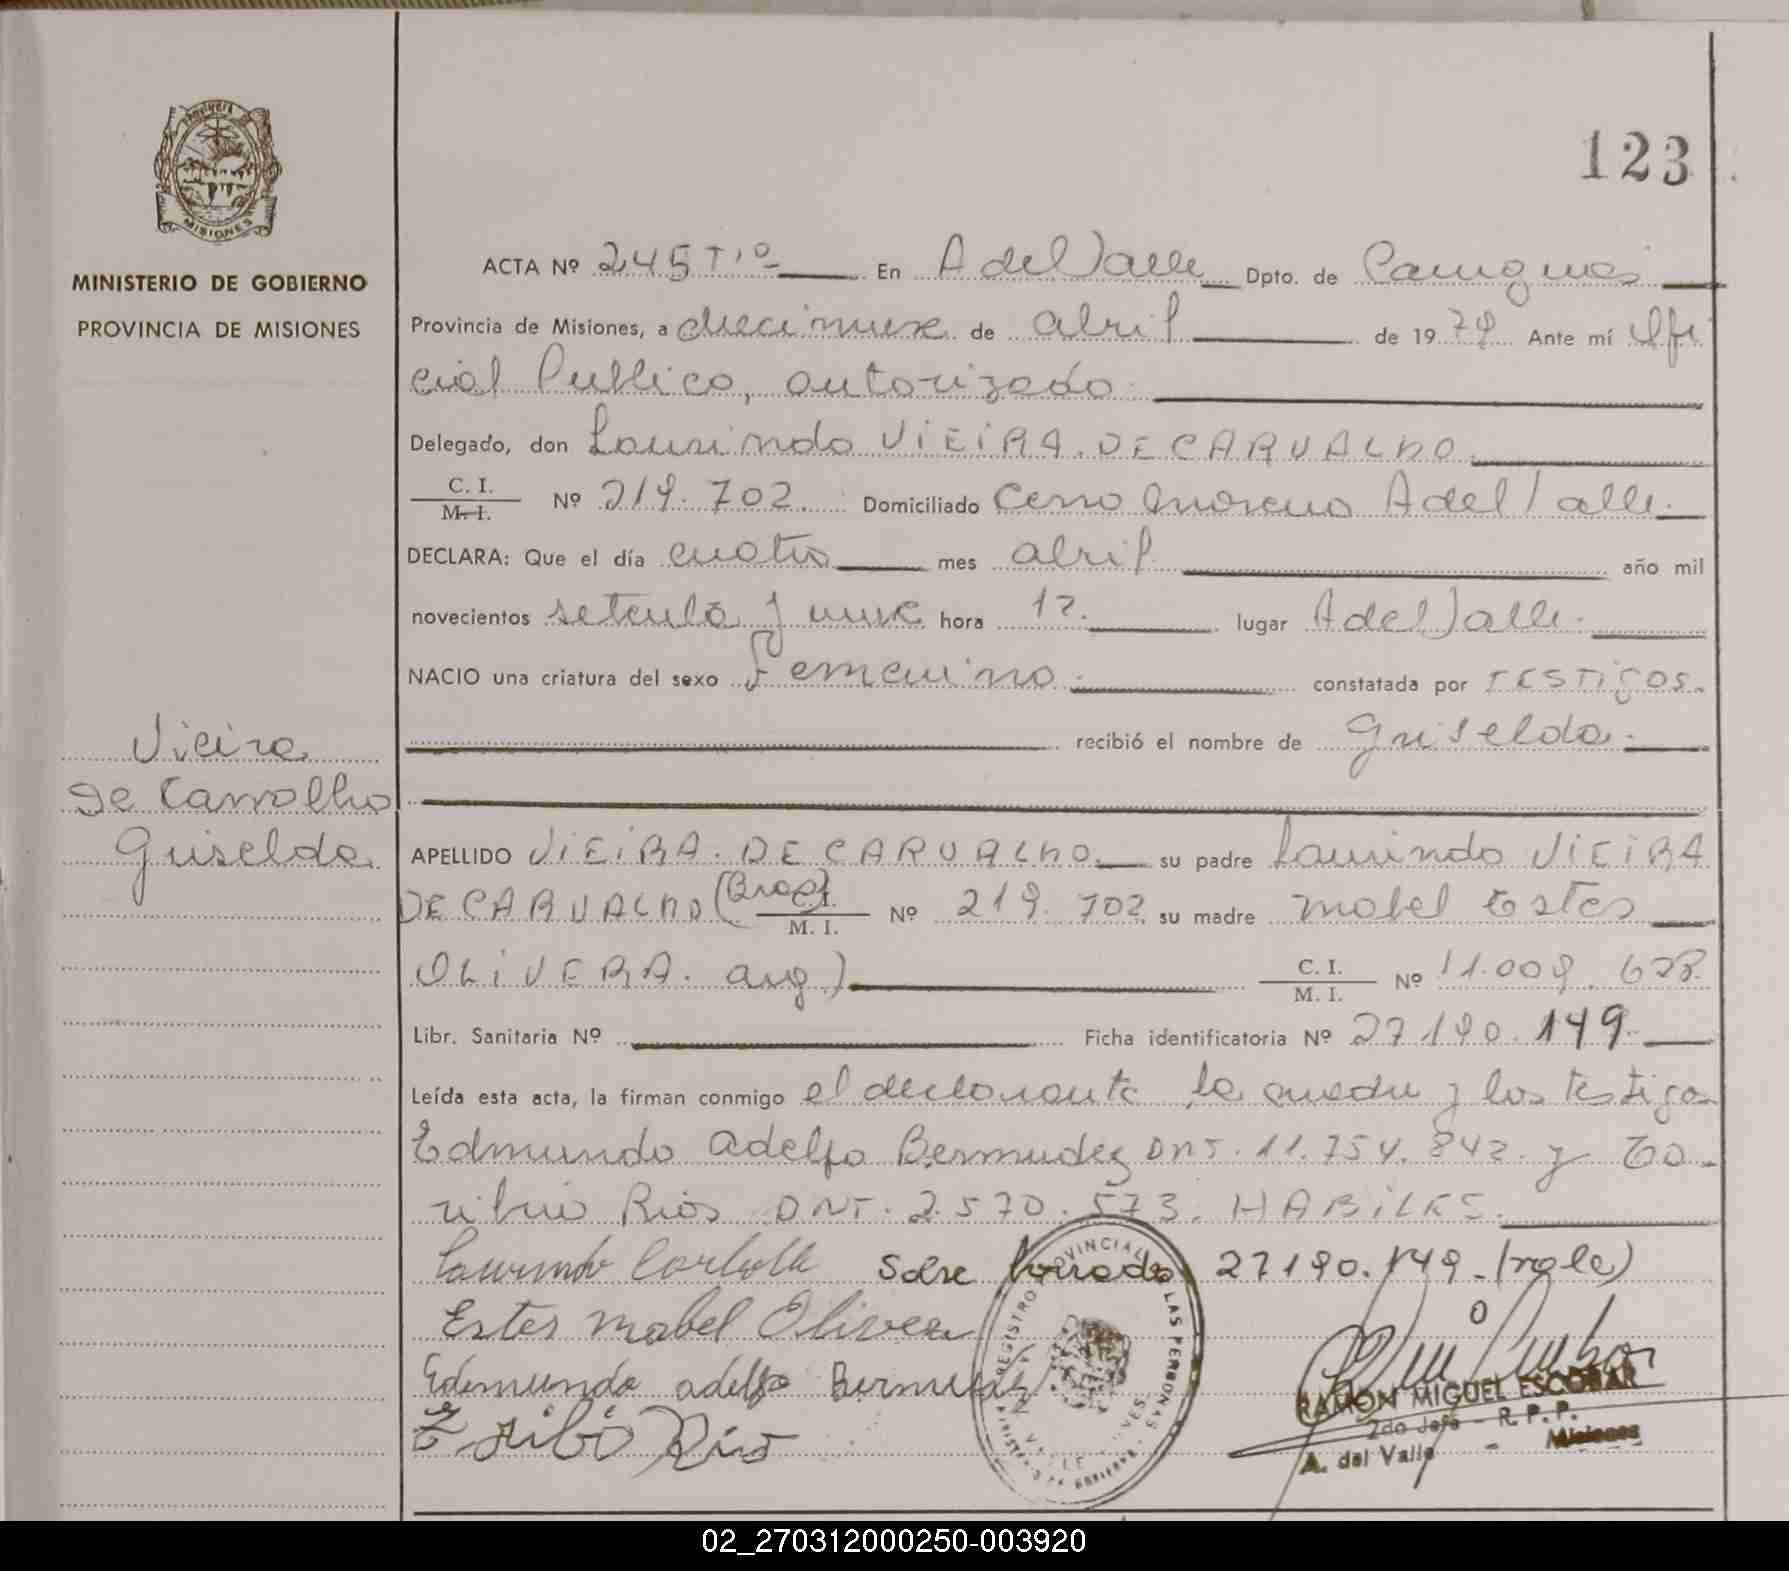 123
MINISTERIO DE GOBIERNO
PROVINCIA DE MISIONES
MISIONES
ACTA Nº 245 Tº En A del Valle Dpto. de Cainguas
Provincia de Misiones, a diecinueve de abril de 1979 Ante mí Ofi
cial Publico, autorizado
Delegado, don Laurindo VIEIRA. DE CARVALHO.
C. I. M. I. Nº 219.702. Domiciliado Cerro Moreno A del Valle.
DECLARA: Que el día cuatro mes abril año mil
novecientos setenta y nueve hora 12. lugar A del Valle.
NACIO una criatura del sexo Femenino constatada por TESTigos.
recibió el nombre de Griselda.
Vieira
De Carvalho
Griselda
APELLIDO VIEIRA. DE CARVALHO su padre Laurindo VIEIRA
DE CARVALHO (Bras) C. I. M. I. Nº 219.702 su madre Mabel Ester
OLIVERA. arg) C. I. M. I. Nº 11.009.628
Libr. Sanitaria Nº Ficha identificatoria Nº 27190.149.
Leída esta acta, la firman conmigo el declarante la madre y los testigos
Edmundo Adelfo Bermudez DNI. 11.754.842. y To
ribio Rios DNI. 2.570.573. HABILES.
Laurindo sobre borrado 27190.149 - (vale)
Ester Mabel Olivera
Edemundo adelfo Bermudez
Toribio Rios
REGISTRO PROVINCIAL DE LAS PERSONAS
RAMON MIGUEL ESCOBAR
2do Jefe - R. P. P.
A. del Valle - Misiones
02_270312000250-003920